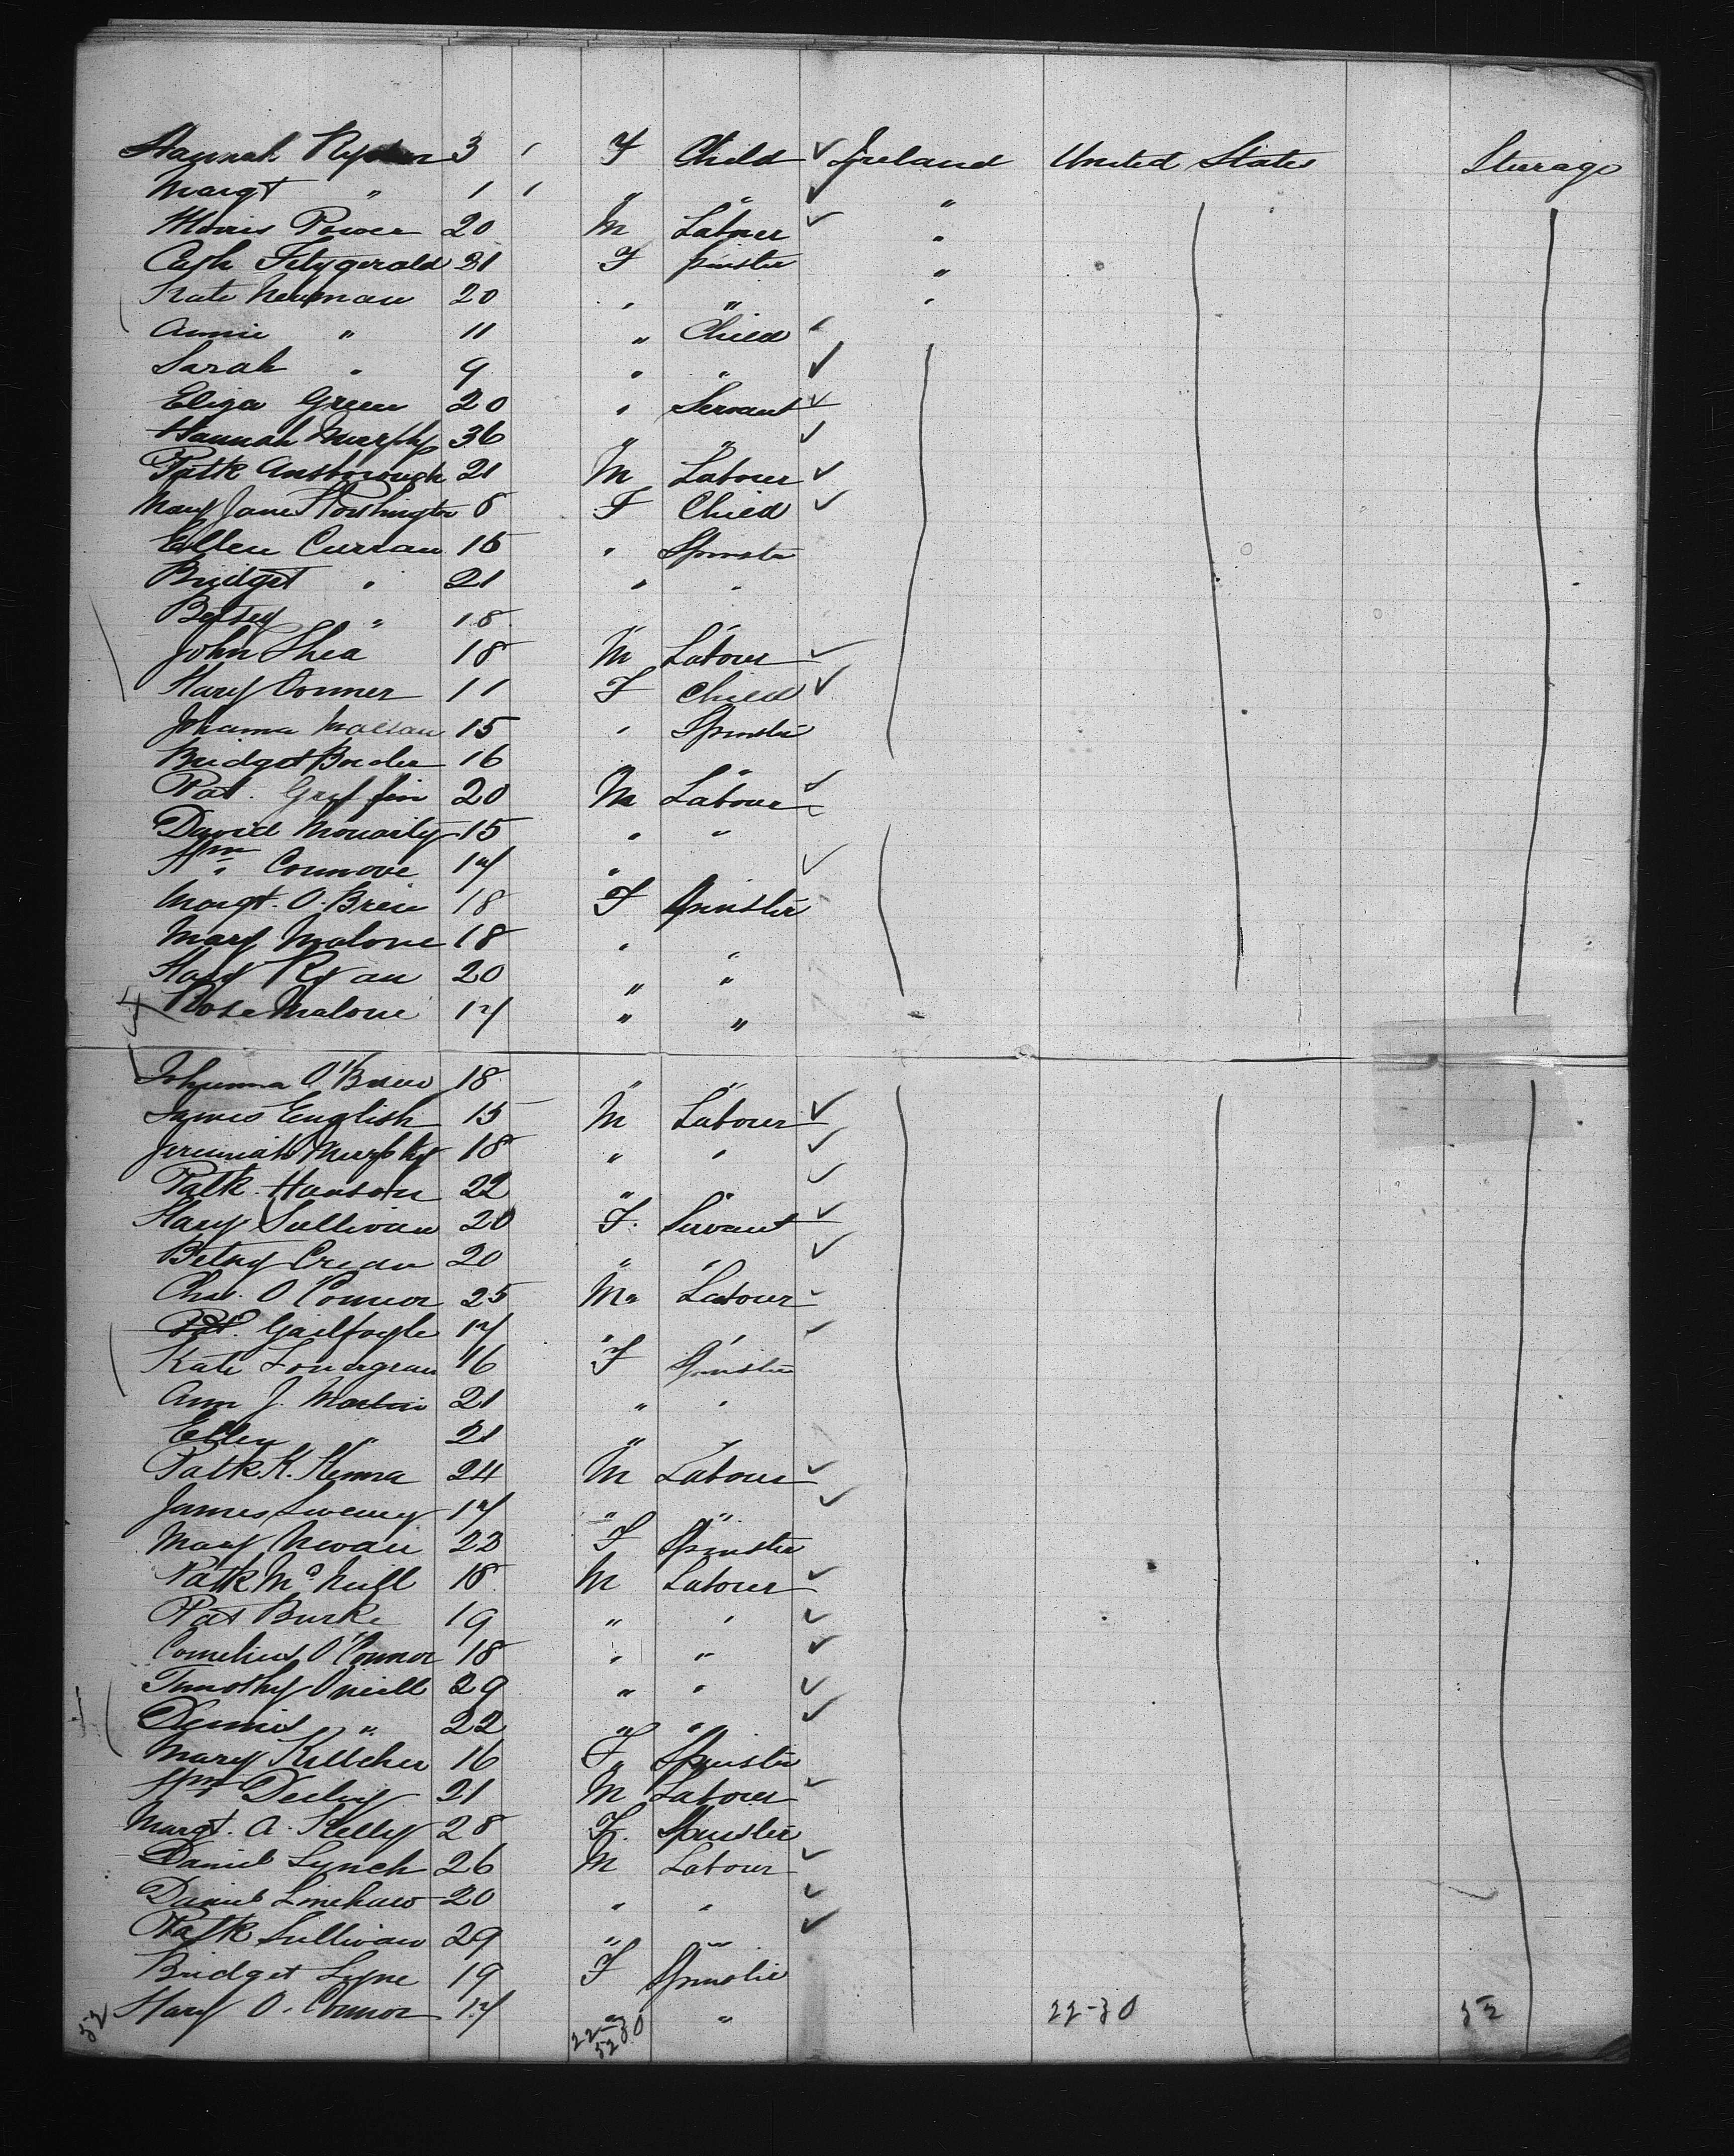 Hannah 3 F Child Ireland United States Steerage
Margt " 1 1 " " "
Morris Power 20 M Labourer "
Cath Fitzgerald 21 F Spinster "
Kate Newman 20 " " "
Annie " 11 " Child
Sarah " 9 " "
Eliza Green 20 " Servant
Hannah Murphy 36 " "
Patk Ansborough 21 M Labourer
Mary Jane F Child
Ellen Curran 15 " Spinster
Bridget " 21 " "
Betsey " 18 " "
John Shea 18 M Labourer
Mary Conner 11 F Child
Johanna 15 " Spinster
Bridget 16 "
Pat. Griffin 20 M Labourer
David Moriarty 15 " "
Wm Connove 17 "
Margt. O. Brien 18 F Spinster
Mary Malone 18 " "
Mary Ryan 20 " "
Rose Malone 17 " "
Johanna O'Brien 18 " "
James English 15 M Labourer
Jeremiah Murphy 18 " "
Patk. 22 " "
Mary Sullivan 20 F. Servant
Betsy Crean 20 " "
Chas. O Connor 25 M " Labourer
Pat. Guilfoyle 17 " "
Kate Lonergan 16 F Spinster
Ann J. Martin 21 " "
Ellen " 21 " "
Patk. K. Kenna 24 M Labourer
James Sweeny 17 " "
Mary 22 F Spinster
Patk Mc Neill 18 M Labourer
Pat Burke 19 " "
Cornelius O'Connor 18 " "
Timothy Oneill 29 " "
Dennis " 22 " "
Mary Kelleher 16 F " Spinster
Wm 21 M Labourer
Margt. A. Kelly 28 F. Spinster
Daniel Lynch 26 M Labourer
Daniel Linehan 20 " "
Patk Sullivan 29 " "
Bridget Lyne 19 F Spinster
Mary O. Connor 17 " "
52 22-30 52 22-30 52